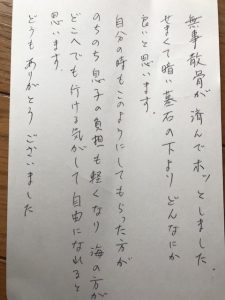 無事散骨が済んでホッとしました.
せまくて暗い墓石の下よりどんなにか
良いと思います.
自分の時もこのようにしてもらった方が
のちのち息子の負担も軽くなり海の方が
どこへでも行ける気がして自由になれると
思います.
どうもありがとうございました